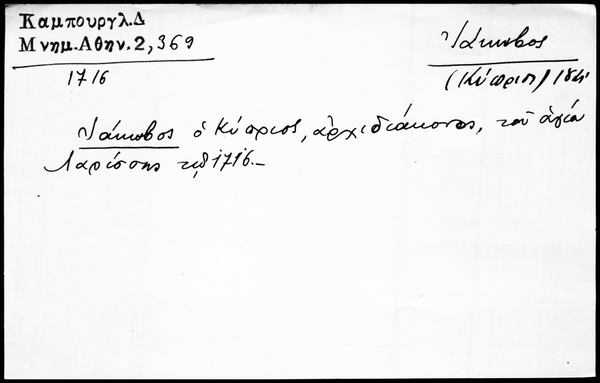 Καμπουργλ.Δ
Μνημ.Αθην.2,369
1716
Ἰάκωβος
(Κύπριος) 184
Ἰάκωβος ὁ Κύπριος, ἀρχιδιάκονος, τοῦ ἁγίου
Λαρίσσης τῷ 1716.–